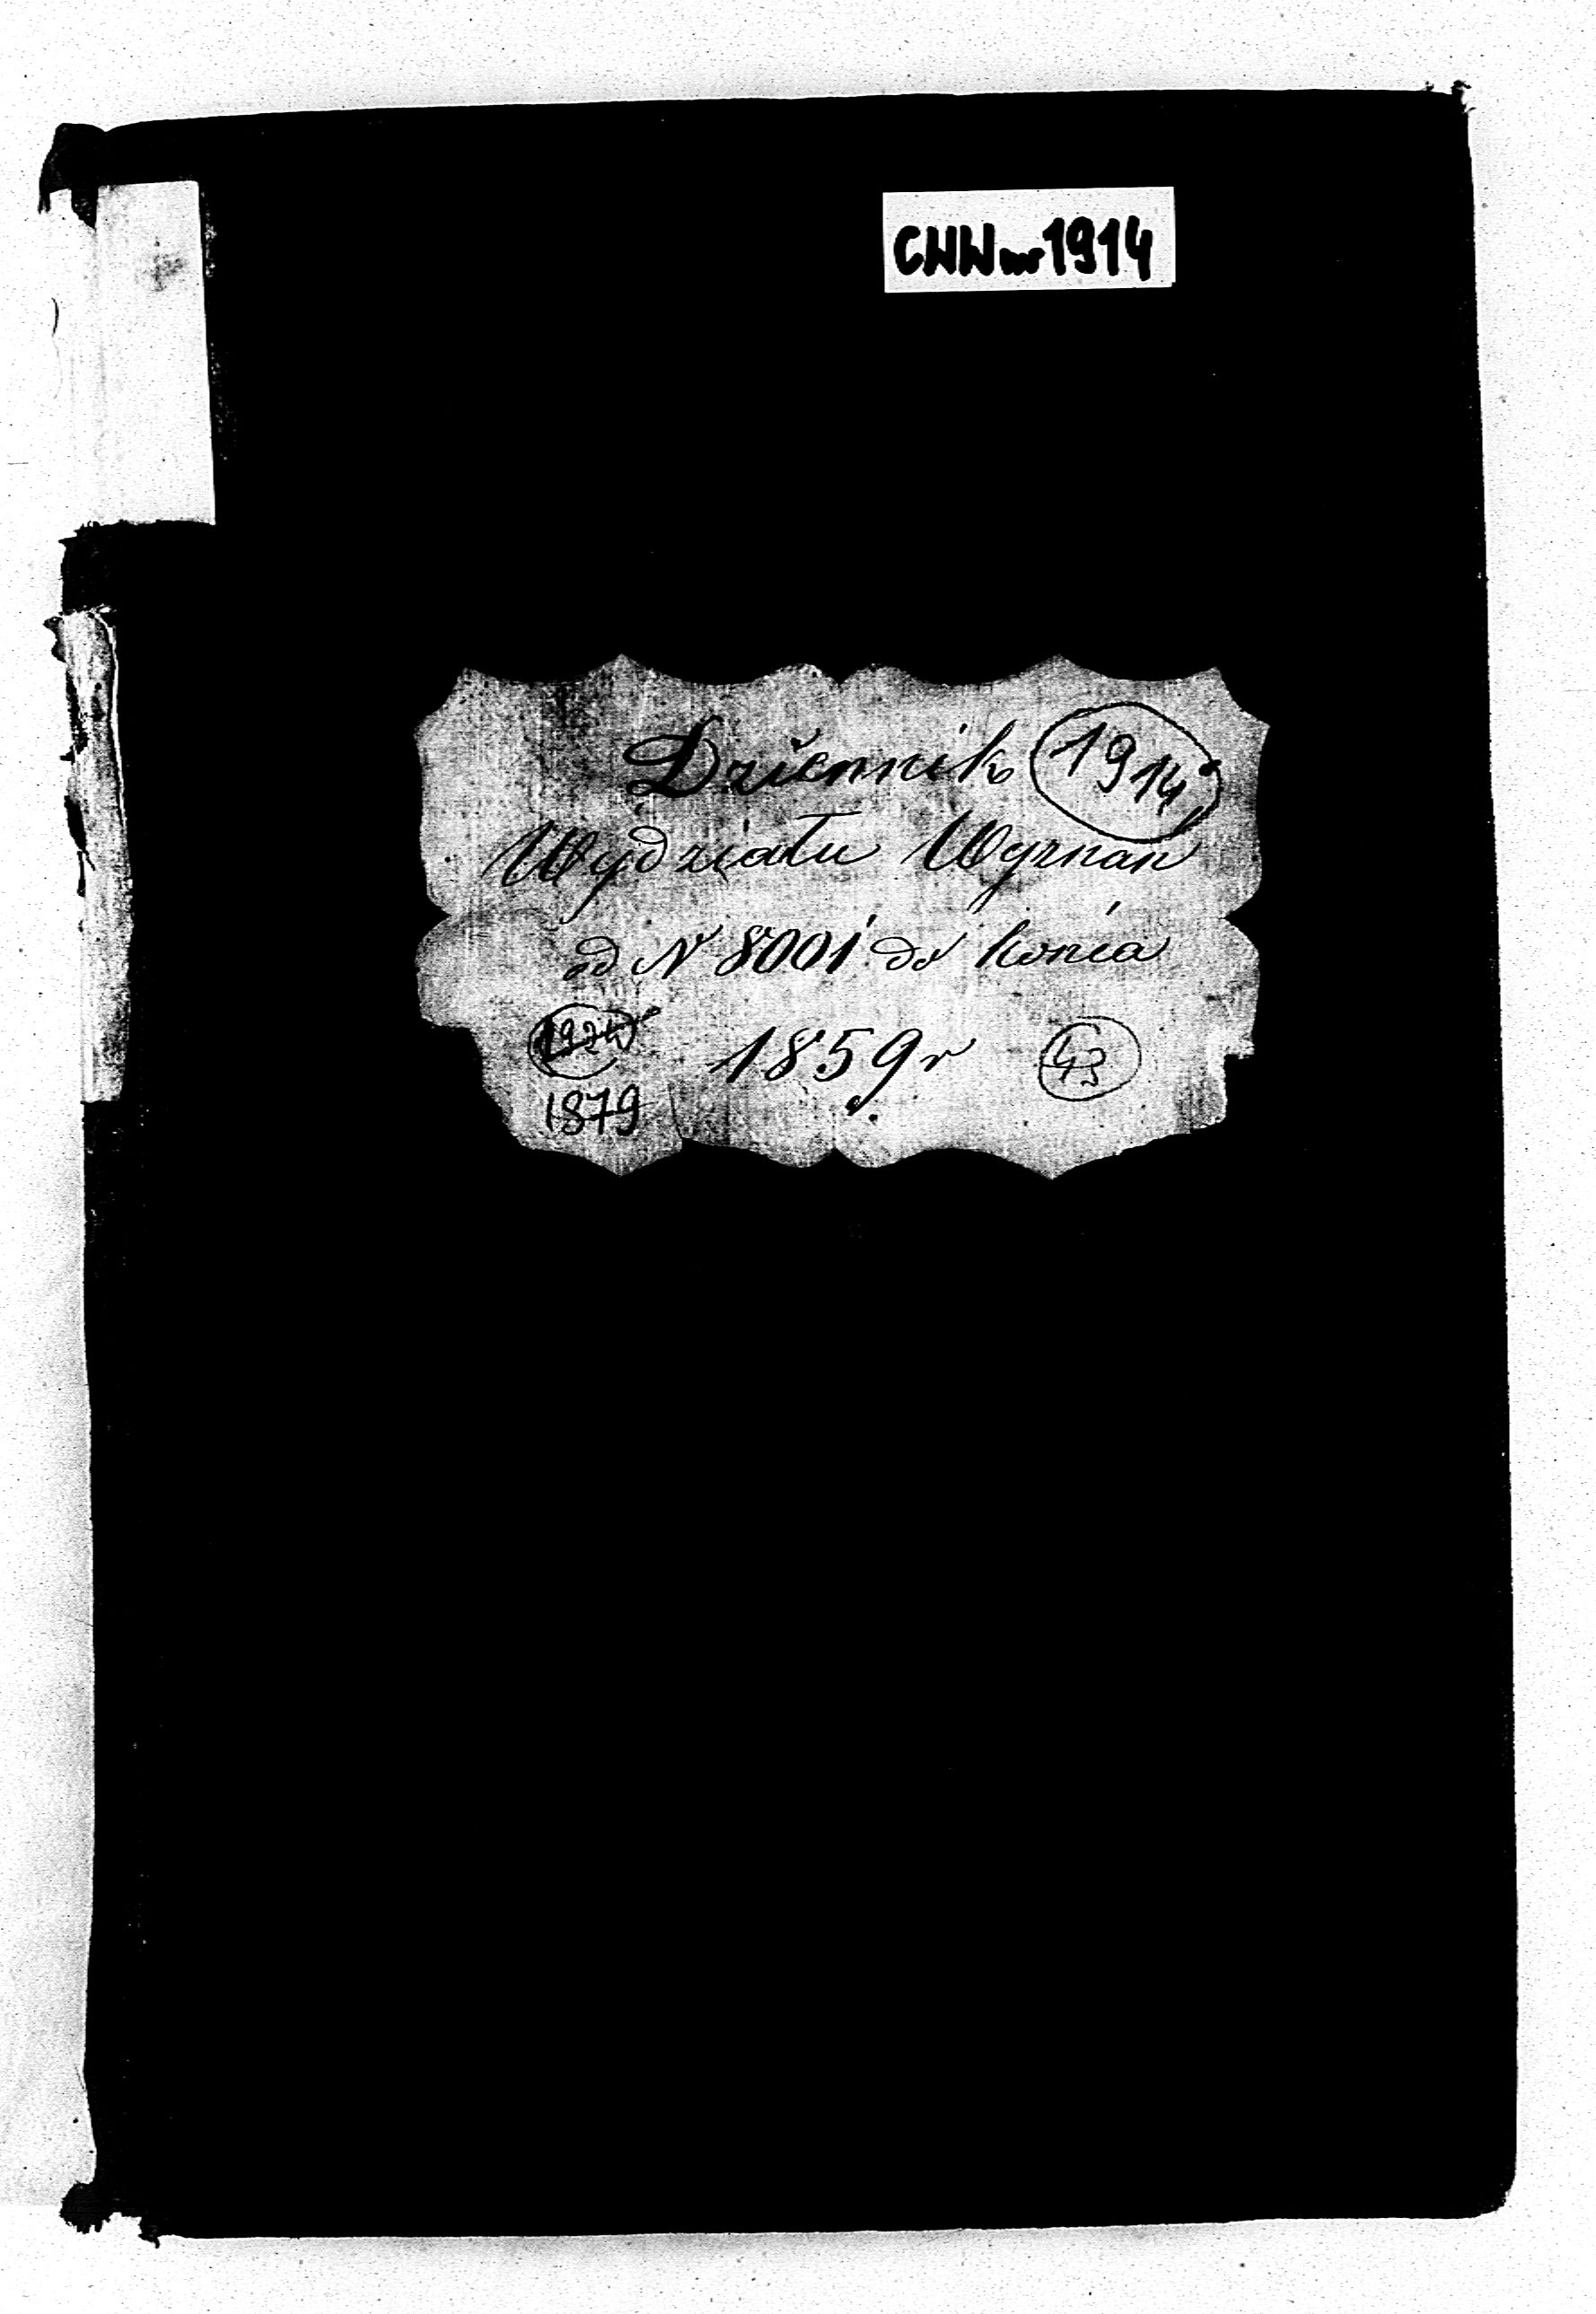 CWW nr 1914
Dziennik 1914
Wydziału Wyznań
od Nr 8001 do końca
1924
1859 r
43
1879